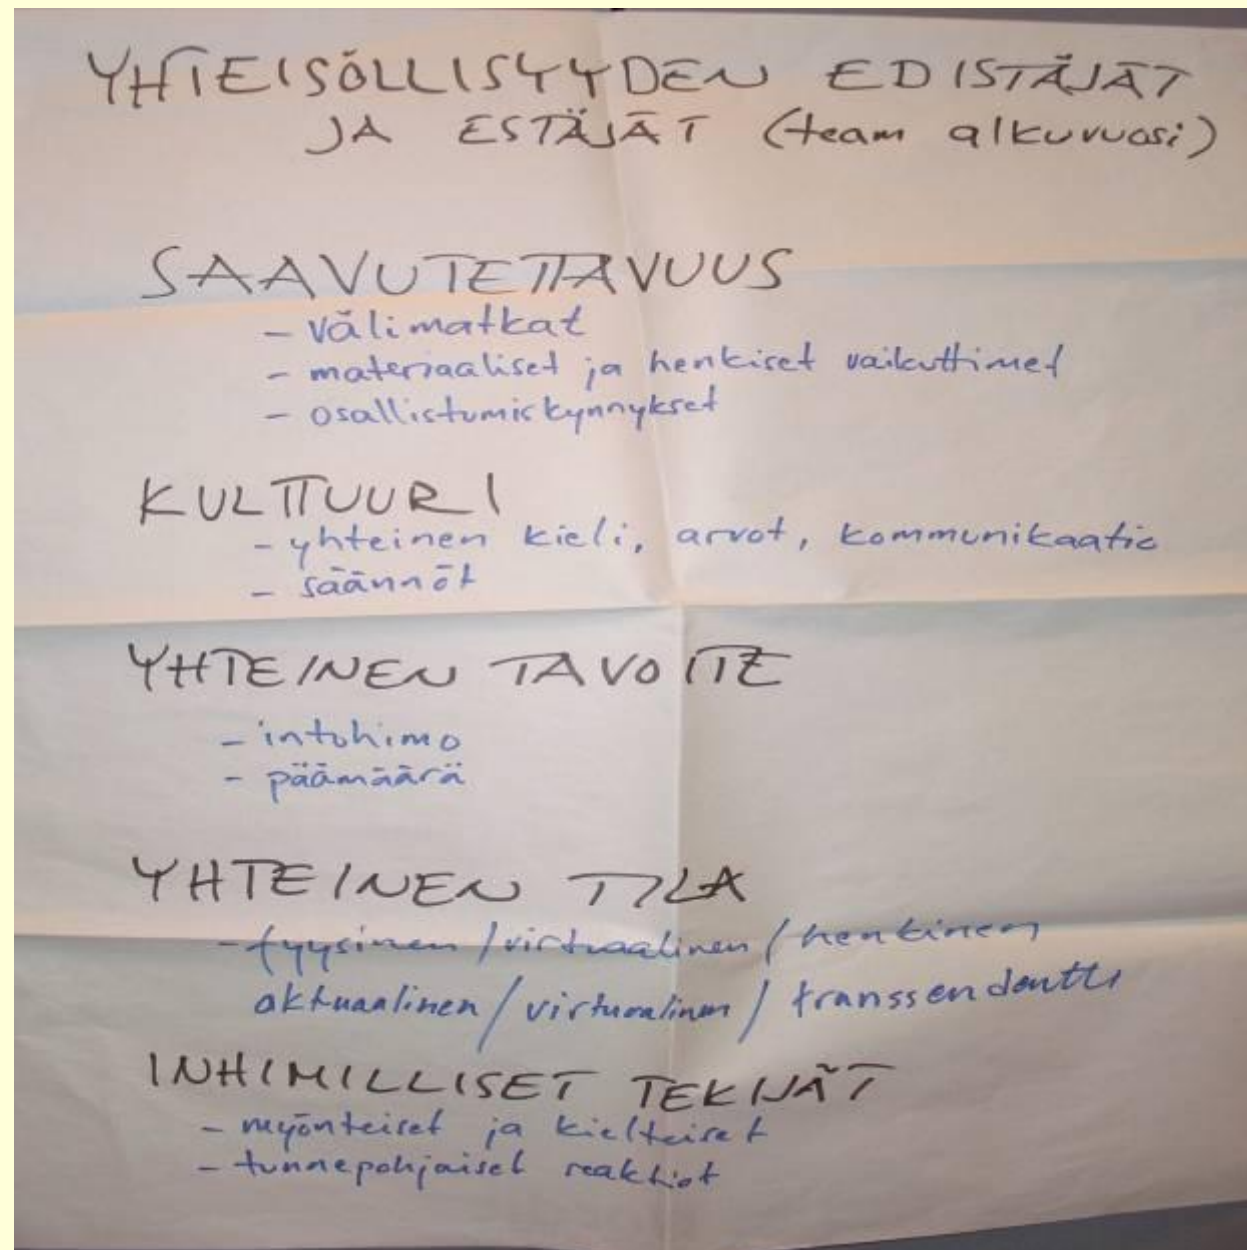 YHTEISÖLLISYYDEN EDISTÄJÄT
JA ESTÄJÄT (team alkuvuosi)
SAAVUTETTAVUUS
- välimatkat
- materiaaliset ja henkiset vaikuttimet
- osallistumiskynnykset
KULTTUURI
- yhteinen kieli, arvot, kommunikaatio
- säännöt
YHTEINEN TAVOITE
- intohimo
- päämäärä
YHTEINEN TILA
- fyysinen / virtuaalinen / henkinen
aktuaalinen / virtuaalinen / transsendentti
INHIMILLISET TEKIJÄT
- myönteiset ja kielteiset
- tunnepohjaiset reaktiot